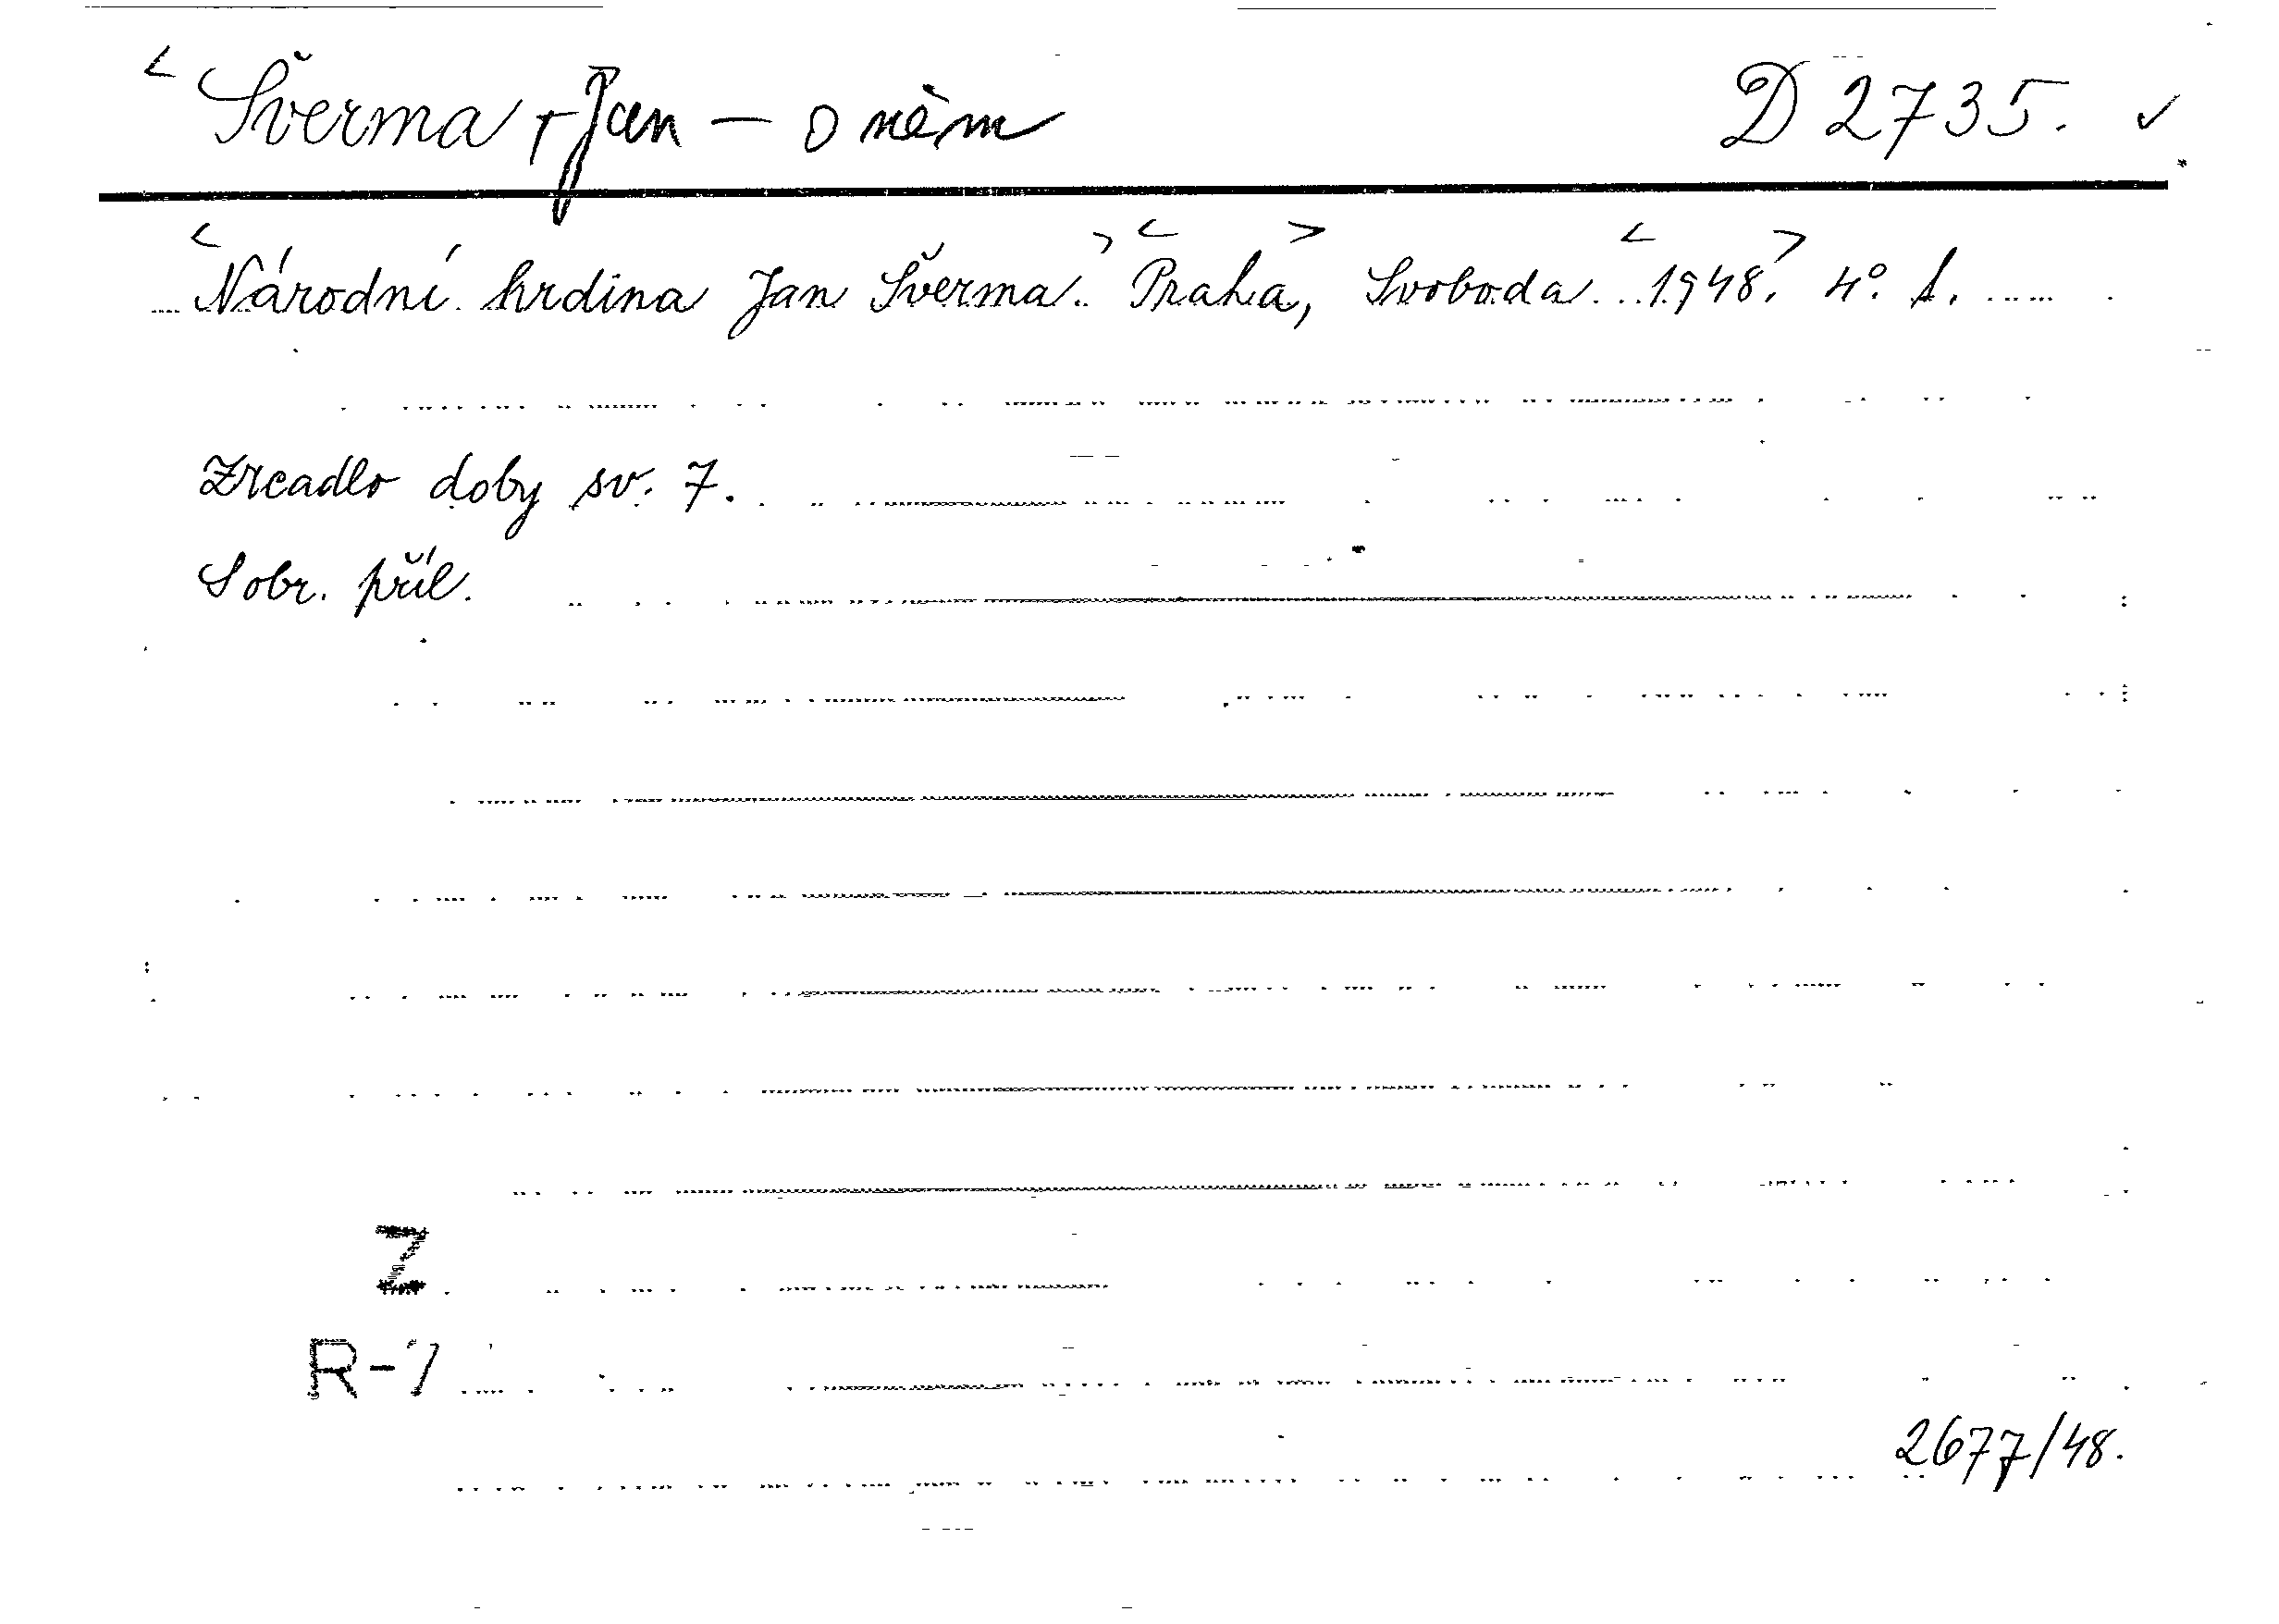 < Šverma, Jan – o něm D 2735. ✓
<Národní hrdina Jan Šverma.> <Praha>, Svoboda <1948.> 4° s.
Zrcadlo doby sv. 7.
S obr. příl.
Z
R-7
2677/48.